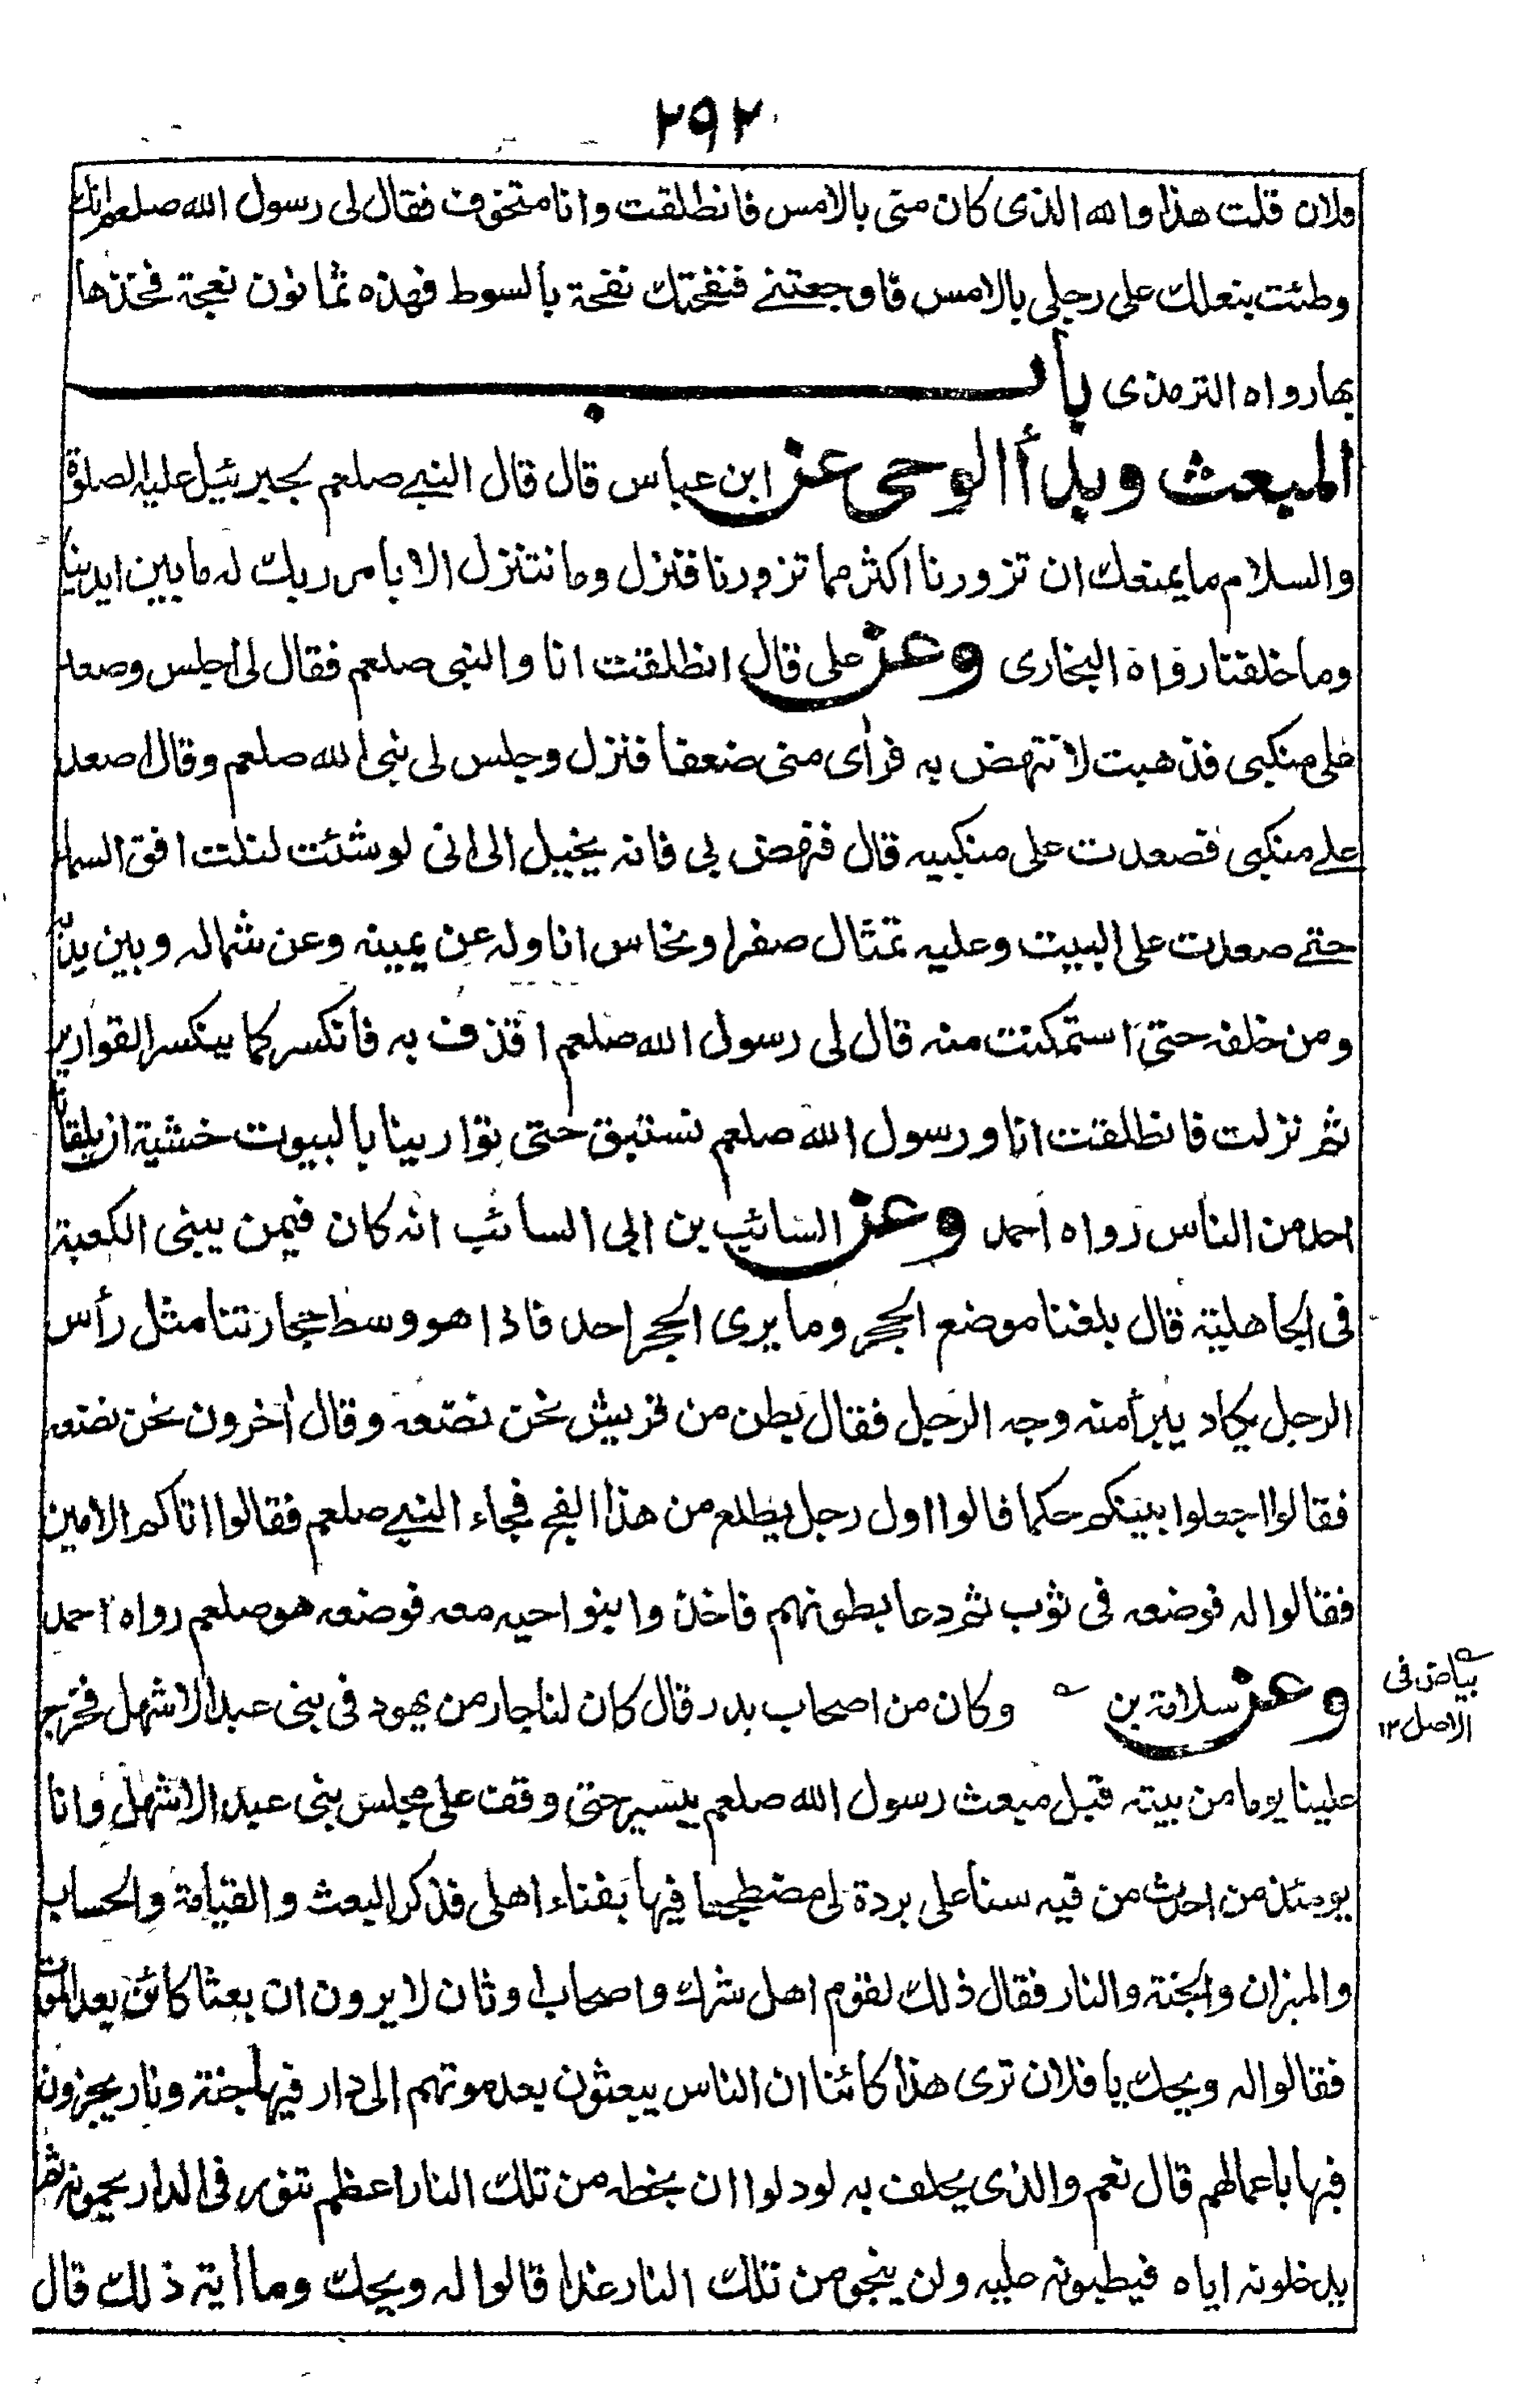 ٢٩٢
فلان قلت هذا والله الذى كان منى بالامس فانطلقت وانا متخوف فقال لى رسول الله صلعم انك
وطئت بنعلك على رجلى بالامس فاوجعتنے فنفحتك نفحة بالسوط فهذه ثمانون نعجة فخذها
بها رواه الترمذى باب
المبعث وبدأ الوحى عن ابن عباس قال قال النبے صلعم بجبرئيل عليه الصلوة
والسلام ما يمنعك ان تزورنا اكثر مما تزورنا فنزل وما نتنزل الا بامر ربك له ما بين ايدينا
وما خلفنا رواه البخارى وعن على قال انطلقت انا والنبى صلعم فقال لى اجلس وصعد
على منكبى فذهبت لا نتهض به فرأى منى ضعفا فنزل وجلس لى نبى الله صلعم وقال اصعد
علے منكبى فصعدت على منكبيه قال فنهض بى فانه يخيل الى انى لو شئت لنلت افق السماء
حتے صعدت على البيت وعليه تمثال صفر او نحاس انا وله عن يمينه وعن شماله وبين يديه
ومن خلفه حتى استمكنت منه قال لى رسول الله صلعم اقذف به فانكسر كما ينكسر القوارير
ثم نزلت فانطلقت انا ورسول الله صلعم نستبق حتى توارينا بالبيوت خشية ان يلقانا
احد من الناس رواه احمد وعن السائب بن ابى السائب انه كان فيمن يبنى الكعبة
فى الجاهلية قال بلغنا موضع الحجر وما يرى الحجر احد فاذا هو وسط حجارتنا مثل رأس
الرجل يكاد يبرأ منه وجه الرجل فقال بطن من قريش نحن نضعه وقال أخرون نحن نضعه
فقالوا اجعلوا بينكم حكما قالوا اول رجل يطلع من هذا الفج فجاء النبے صلعم فقالوا اتاكم الامين
فقالوا له فوضعه فى ثوب ثم دعا بطونهم فاخذوا بنواحيه معه فوضعه هو صلعم رواه احمد
وعن سلامة بن ؁ وكان من اصحاب بدر قال كان لنا جار من يهود فى بنى عبد الاشهل فخرج
بياض فى
الاصل ١٢
علينا يوما من بيته قبل مبعث رسول الله صلعم بيسير حتى وقف على مجلس بنى عبد الاشهل وانا
يومئذ من احدث من فيه سنا على بردة لى مضطجعا فيها بفناء اهلى فذكر البعث والقيامة والحساب
والميزان والجنة والنار فقال ذلك لقوم اهل شرك واصحاب اوثان لا يرون ان بعثا كائن بعد الموت
فقالوا له ويحك يا فلان ترى هذا كائنا ان الناس يبعثون بعد موتهم الى دار فيها جنة ونار يجزون
فيها باعمالهم قال نعم والذى يحلف به لودلوا ان بخطه من تلك النار اعظم تنور فى الدار يحمونه ثم
يدخلونه اياه فيطبونه عليه ولن ينجو من تلك النار غدا قالوا له ويحك وما أية ذلك قال